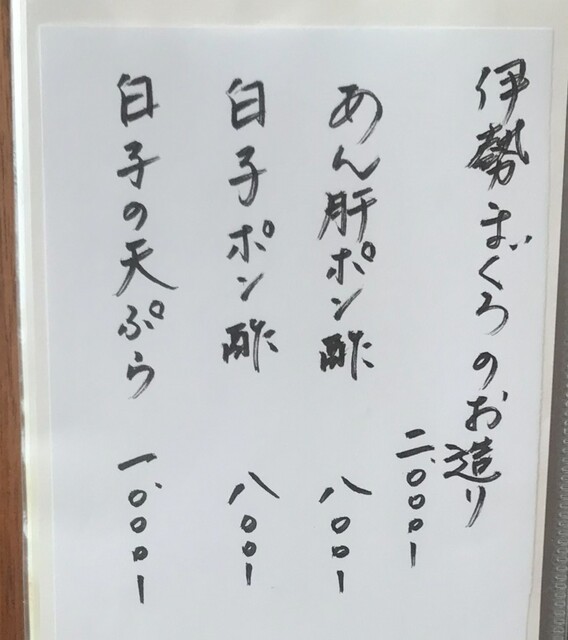 伊勢まぐろのお造り
二、〇〇〇ー
あん肝ポン酢
八〇〇ー
白子ポン酢
八〇〇ー
白子の天ぷら
一、〇〇〇ー